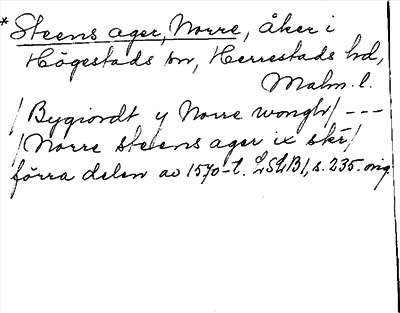 * Steens ager, Norre, åker i
Högestads sn, Herrestads hd,
Malm. l.
/Bygiordt y Norre wongh/ ---
/Norre steens ager ix skr/
förra delen av 1570-t. LSLB 1, s. 235. orig.